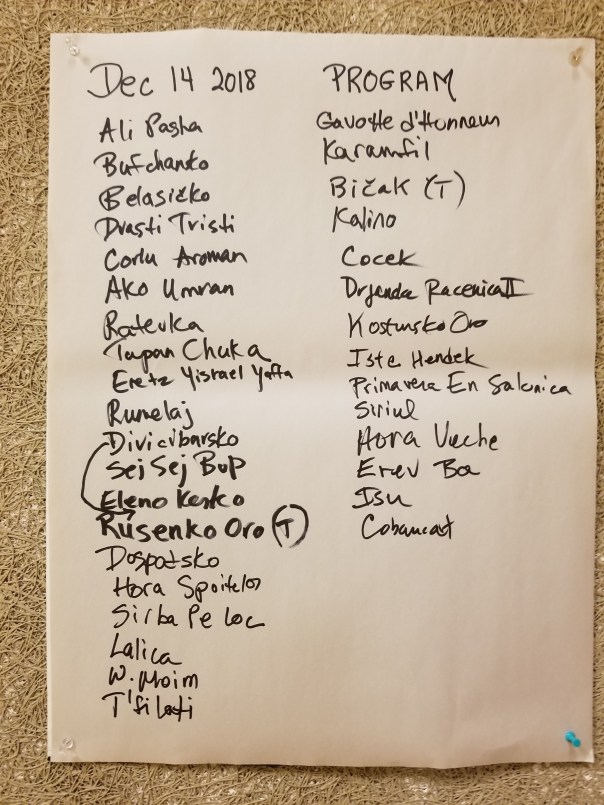 Dec 14 2018
Ali Pasha
Bufchansko
Belasičko
Drasti Tristi
Corlu Aroman
Ako Umran
Ratevka
Tapan Chuka
Eretz Yisrael Yaffa
Rumelaj
Divicibarsko
Sej Sej Bop
Eleno Kerko
Rusenko Oro (T)
Dospatsko
Hora Spoitelor
Sirba Pe Loc
Lalica
W. Moim
T'filati
PROGRAM
Gavotte d'Honneur
Karamfil
Bičak (T)
Kalino
Cocek
Drjanda Racenica II
Kostursko Oro
Iste Hendek
Primavera En Salonica
Siriul
Hora Veche
Erev Ba
Isu
Cobancat